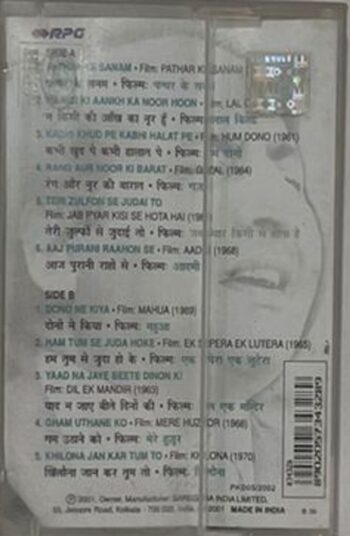 RPG
SIDE A
1. PATHAR KE SANAM • Film: PATHAR KE SANAM
पत्थर के सनम • फिल्म: पत्थर के सनम
2. NA KISI KI AANKH KA NOOR HOON • Film: LAL
न किसी की आँख का नूर हूँ • फिल्म: लाल किला
3. KABHI KHUD PE KABHI HALAT PE • Film: HUM DONO (1961)
कभी खुद पे कभी हालात पे • फिल्म: हम दोनो
4. RANG AUR NOOR KI BARAT • Film: GAZAL (1964)
रंग और नूर की बारात • फिल्म:
5. TERI ZULFON SE JUDAI TO
Film: JAB PYAR KISI SE HOTA HAI
तेरी ज़ुल्फों से जुदाई तो • फिल्म: जब प्यार किसी से होता है
6. AAJ PURANI RAAHON SE • Film: AADMI (1968)
आज पुरानी राहों से • फिल्म: आदमी
SIDE B
1. DONO NE KIYA • Film: MAHUA (1969)
दोनो ने किया • फिल्म: महुआ
2. HAM TUM SE JUDA HOKE • Film: EK SAPERA EK LUTERA (1965)
हम तुम से जुदा हो के • फिल्म: एक सपेरा एक लुटेरा
3. YAAD NA JAYE BEETE DINON KI
Film: DIL EK MANDIR (1963)
याद न जाए बीते दिनों की • फिल्म: दिल एक मन्दिर
4. GHAM UTHANE KO • Film: MERE HUZOOR (1968)
गम उठाने को • फिल्म: मेरे हुज़ूर
5. KHILONA JAN KAR TUM TO • Film: KHILONA (1970)
खिलौना जान कर तुम तो • फिल्म: खिलौना
8902057343289
PKD05/2002
℗ 2001, Owner, Manufacturer: SAREGAMA INDIA LIMITED,
33, Jessore Road, Kolkata - 700 028, 2001 MADE IN INDIA